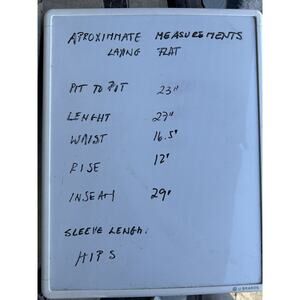 APROXIMMATE MEASUREMENTS
LAYING FLAT
PIT TO PIT 23"
LENGHT 27"
WAIST 16.5"
RISE 12"
INSEAM 29"
SLEEVE LENGH:
HIPS
U BRANDS